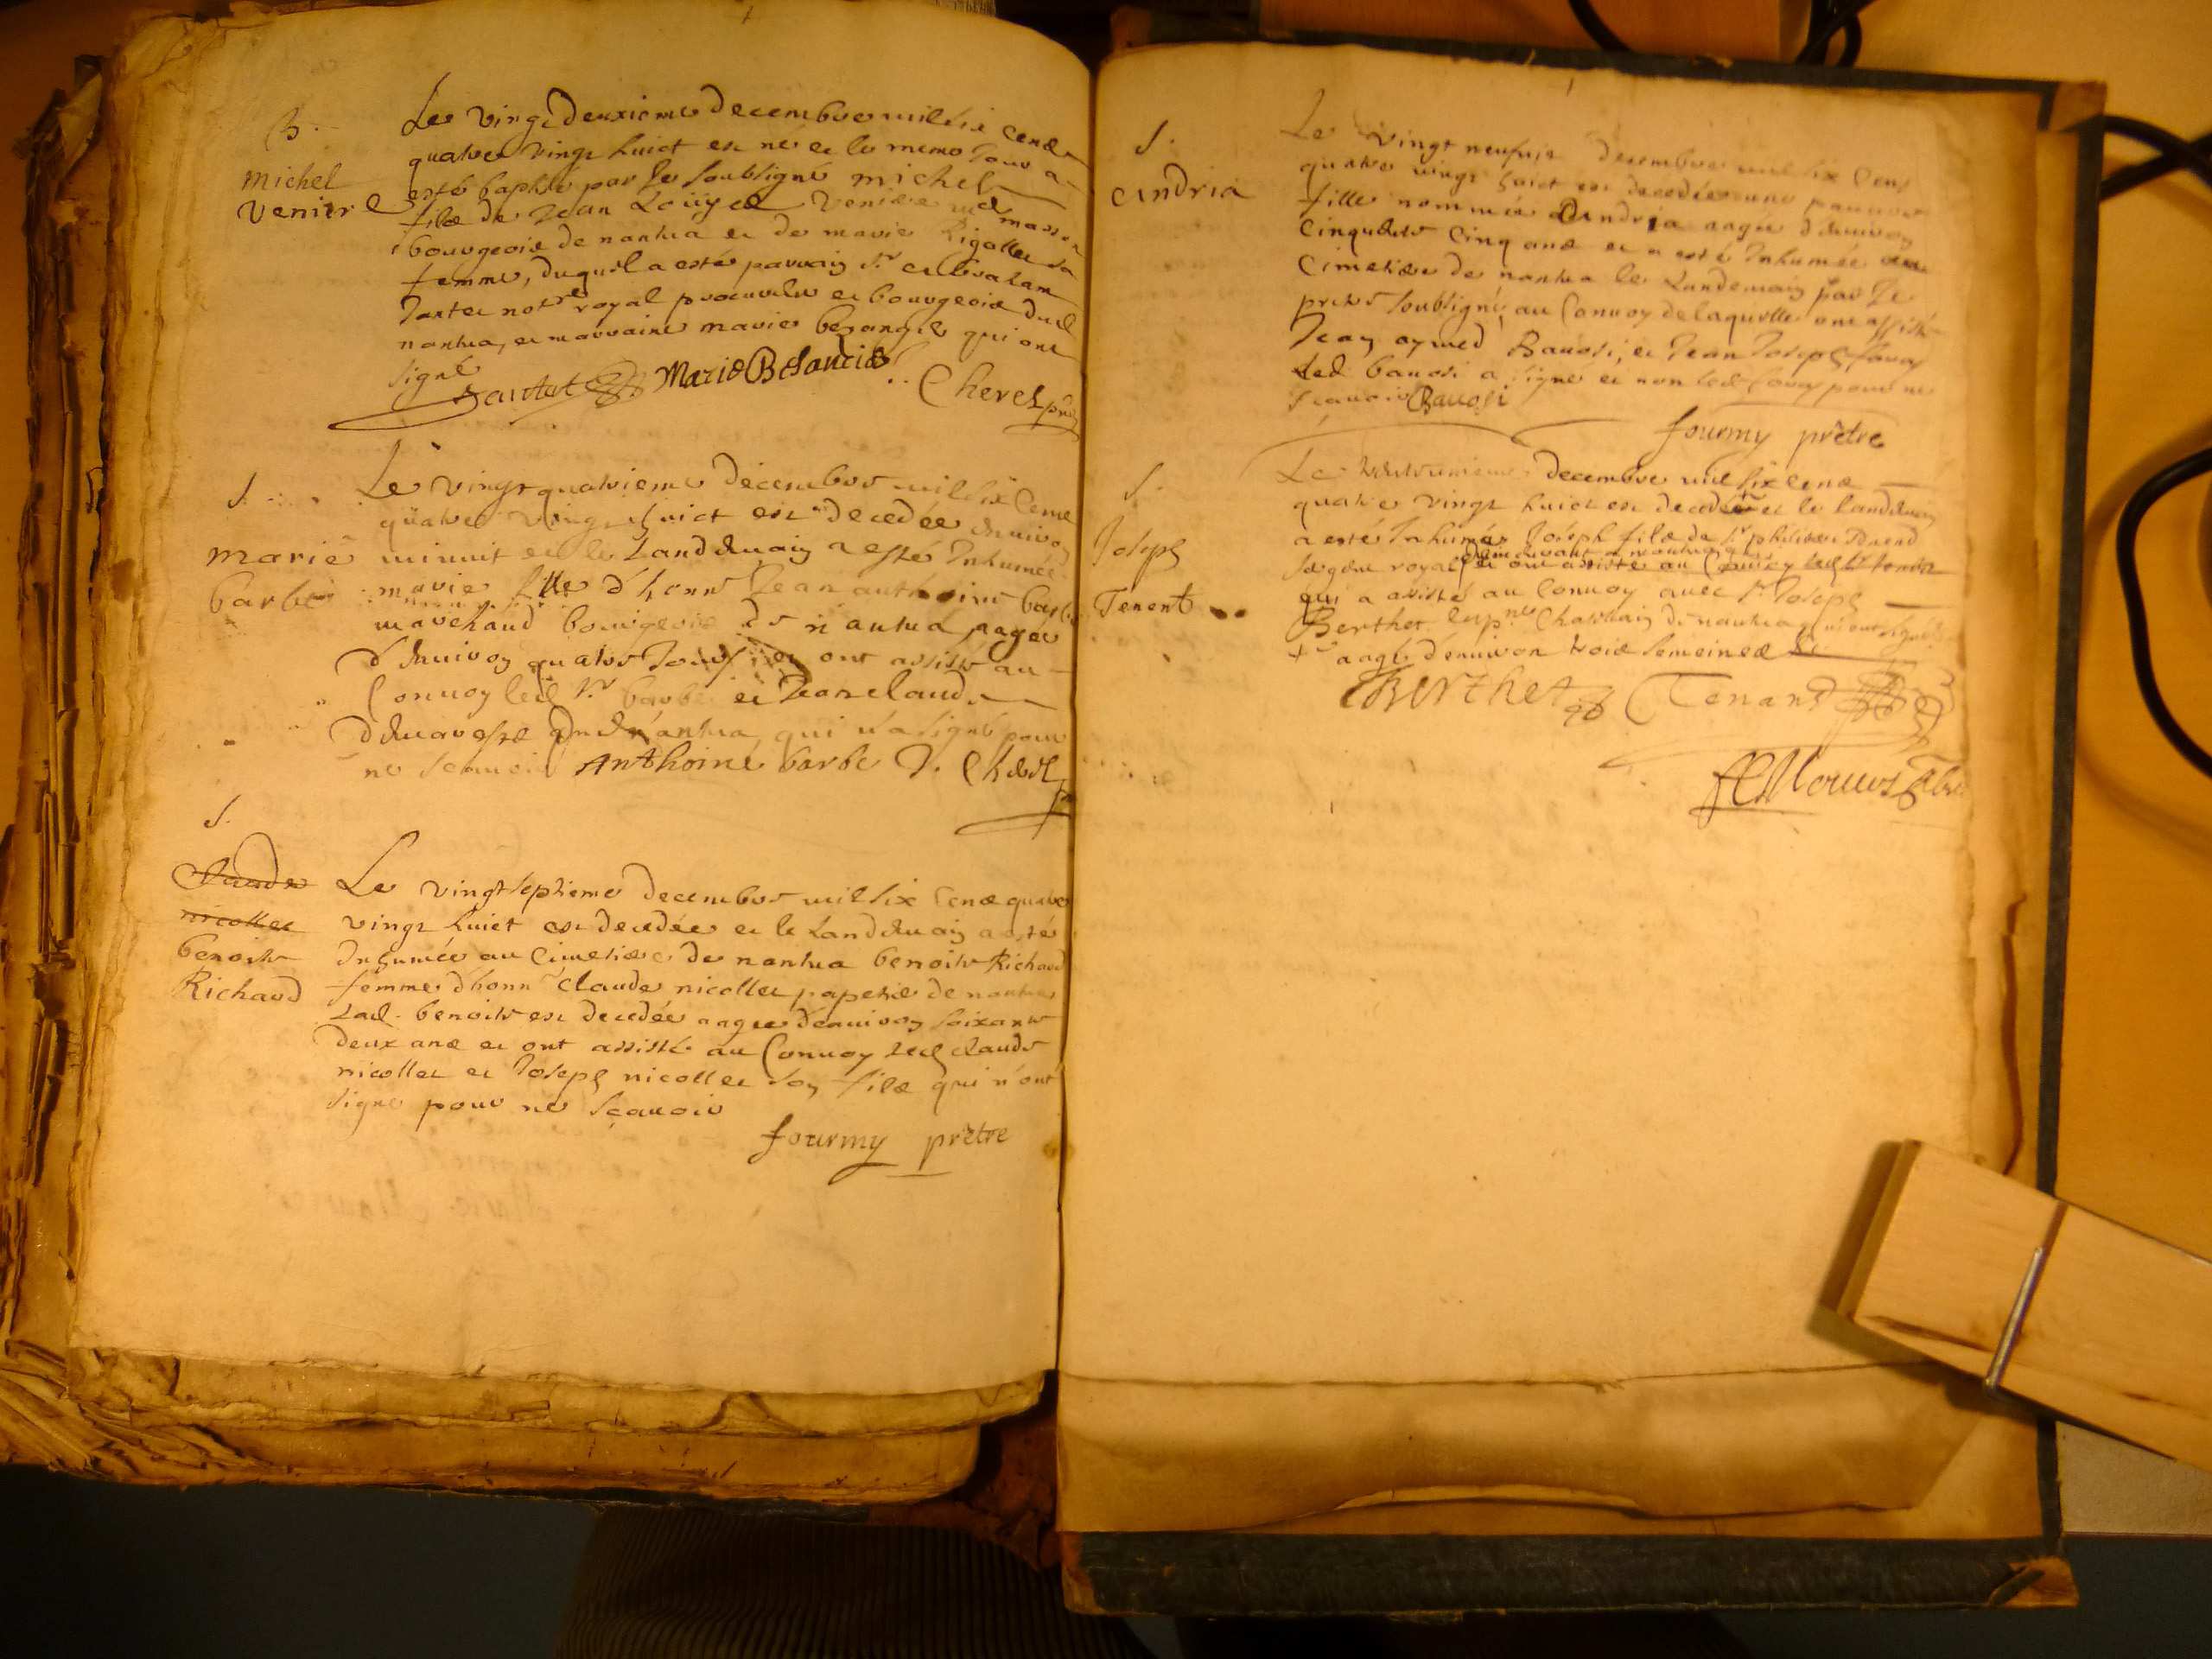 B.
Michel
Venitre
Le vingt deuxieme decembre mil six cens
quatre vingt huict est né et le meme Jour a
esté baptisé par Je soubsigné michel
fils de Jean Louys Venitre md masson
bourgeois de nantua et de marie Rigollet sa
femme, duquel a esté parrain sr
Jantet notre royal procureur et bourgeois dud
nantua, et marraine marie besangie qui ont
signé
Jantet Marie Besancie Cheret
S.
Marie
barbe
Le vingt quatrieme decembre mil six cens
quatre vingt huict est decedée environ
minuit et le Landemain a esté Inhumée
marie fille d'honn Jean anthoine barbe
marchand bourgeois de nantua aagée
d'environ quatre Jours, et ont assisté au
Convoy led sr barbe et Jean claude
dud nantua, qui n'a signé pour
ne scauoir Anthoine barbe
S.
Claude
nicollet
benoite
Richard
Le vingt septieme decembre mil six cens quatre
vingt huict est decedée et le Landemain a esté
Inhumée au Cimetiere de nantua benoite Richard
femme d'honn claude nicollet papetier de nantua
Lad. benoite est decedée aagée d'enuiron soixante
deux ans et ont assisté au Convoy led claude
nicollet et Joseph nicollet son fils qui n'ont
signe pour ne sçauoir
fourmy prêtre
S.
Andria
Le vingt neufuie decembre mil six cens
quatre vingt huict est decedée une pauure
fille nommée Andria aagée d'enuiron
cinquante cinq ans et a esté Inhumée au
Cimetiere de nantua le Landemain par Je
pretre soubsigné, au Convoy de laquelle ont assisté
Jean aymed Bauosi, et Jean Joseph
Led bauosi a signé et non led pour ne
scauoir Bauosi
fourmy prêtre
S.
Joseph
Tenent
Le decembre mil six cens
quatre vingt huict est decedé et le landemain
a esté Inhumé Joseph fils de sr philibert
royal et ont assisté au Convoy
qui a assisté au Convoy auec sr Joseph
Berthet de nantua qui ont signé
aagé d'enuiron trois semeines
Berthet Tenand